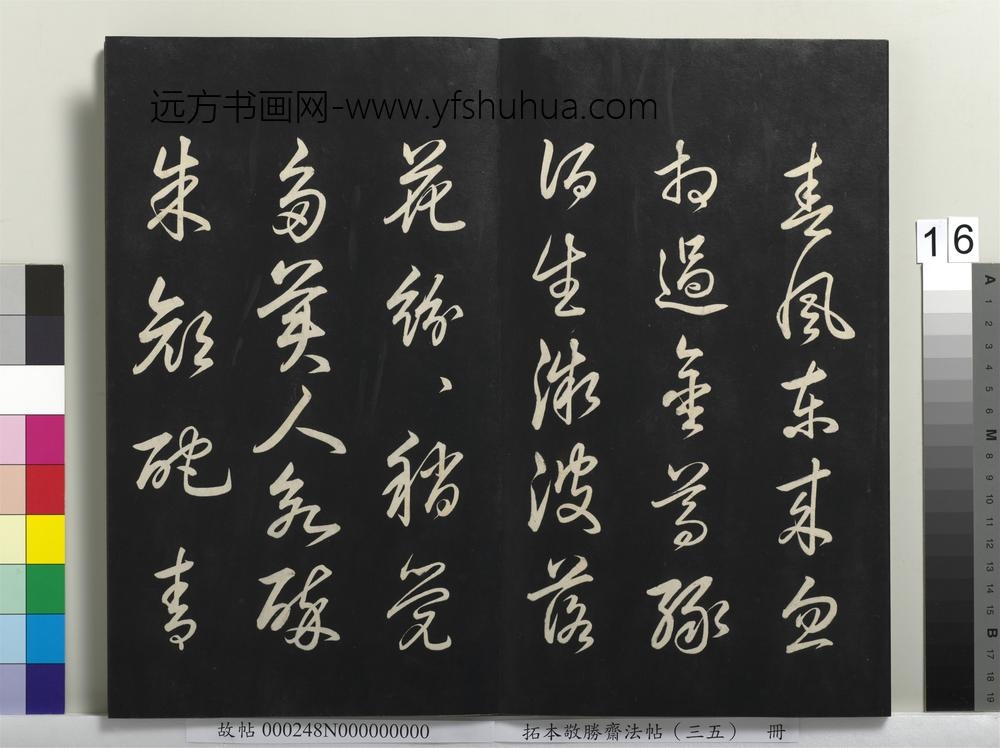 远方书画网-www.yfshuhua.com
春風東來忽
相過金尊緑
酒生微波落
花紛、稍覺
多美人欲醉
朱顔酡青
16
A
1
2
3
4
5
6
M
8
9
10
11
12
13
14
15
B
17
18
19
故帖 000248N000000000
拓本敬勝齋法帖（三五） 冊